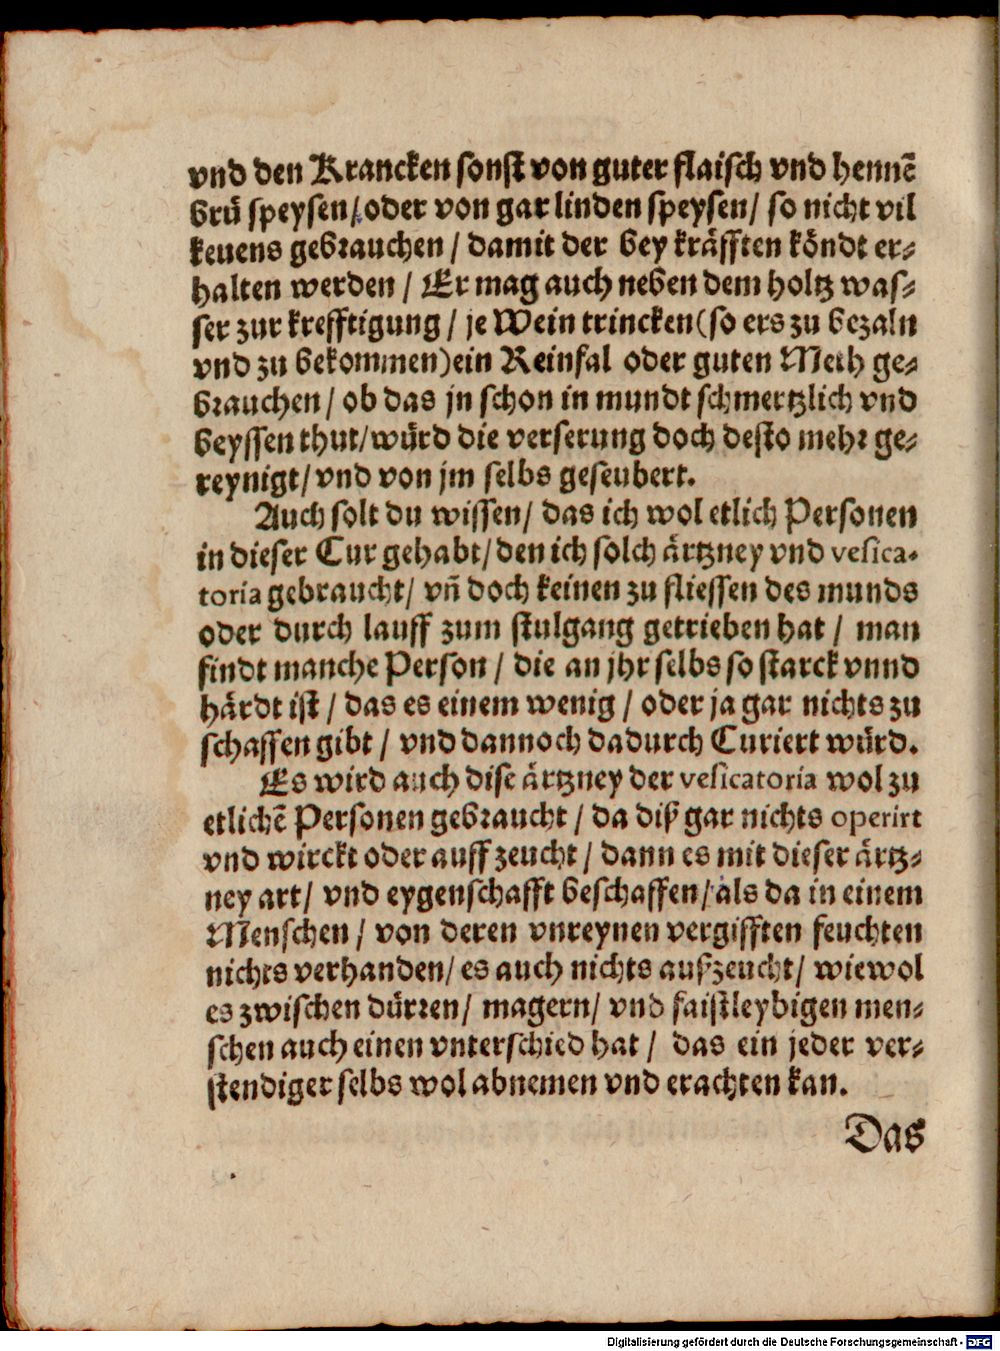 vnd den Krancken sonst von guter flaisch vnd hennẽ
brů speysen/ oder von gar linden speysen/ so nicht vil
keuens gebrauchen / damit der bey kräfften köndt er-
halten werden / Er mag auch neben dem holtz was-
ser zur krefftigung / je Wein trincken(so ers zu bezaln
vnd zu bekommen)ein Reinfal oder guten Meth ge-
brauchen / ob das jn schon in mundt schmertzlich vnd
beyssen thut/würd die verserung doch desto mehr ge-
reynigt/ vnd von jm selbs geseubert.
Auch solt du wissen/ das ich wol etlich Personen
in dieser Cur gehabt/den ich solch ärtzney vnd vesica-
toria gebraucht/ vñ doch keinen zu fliessen des munds
oder durch lauff zum stulgang getrieben hat / man
findt manche Person / die an jhr selbs so starck vnnd
härdt ist / das es einem wenig / oder ja gar nichts zu
schaffen gibt / vnd dannoch dadurch Curiert würd.
Es wird auch dise ärtzney der vesicatoria wol zu
etlichẽ Personen gebraucht / da diß gar nichts operirt
vnd wirckt oder auff zeucht / dann es mit dieser ärtz-
ney art/ vnd eygenschafft beschaffen/ als da in einem
Menschen / von deren vnreynen vergifften feuchten
nichts verhanden/ es auch nichts außzeucht/ wiewol
es zwischen dürren/ magern/ vnd faistleybigen men-
schen auch einen vnterschied hat / das ein jeder ver-
stendiger selbs wol abnemen vnd erachten kan.
Das
Digitalisierung gefördert durch die Deutsche Forschungsgemeinschaft - DFG